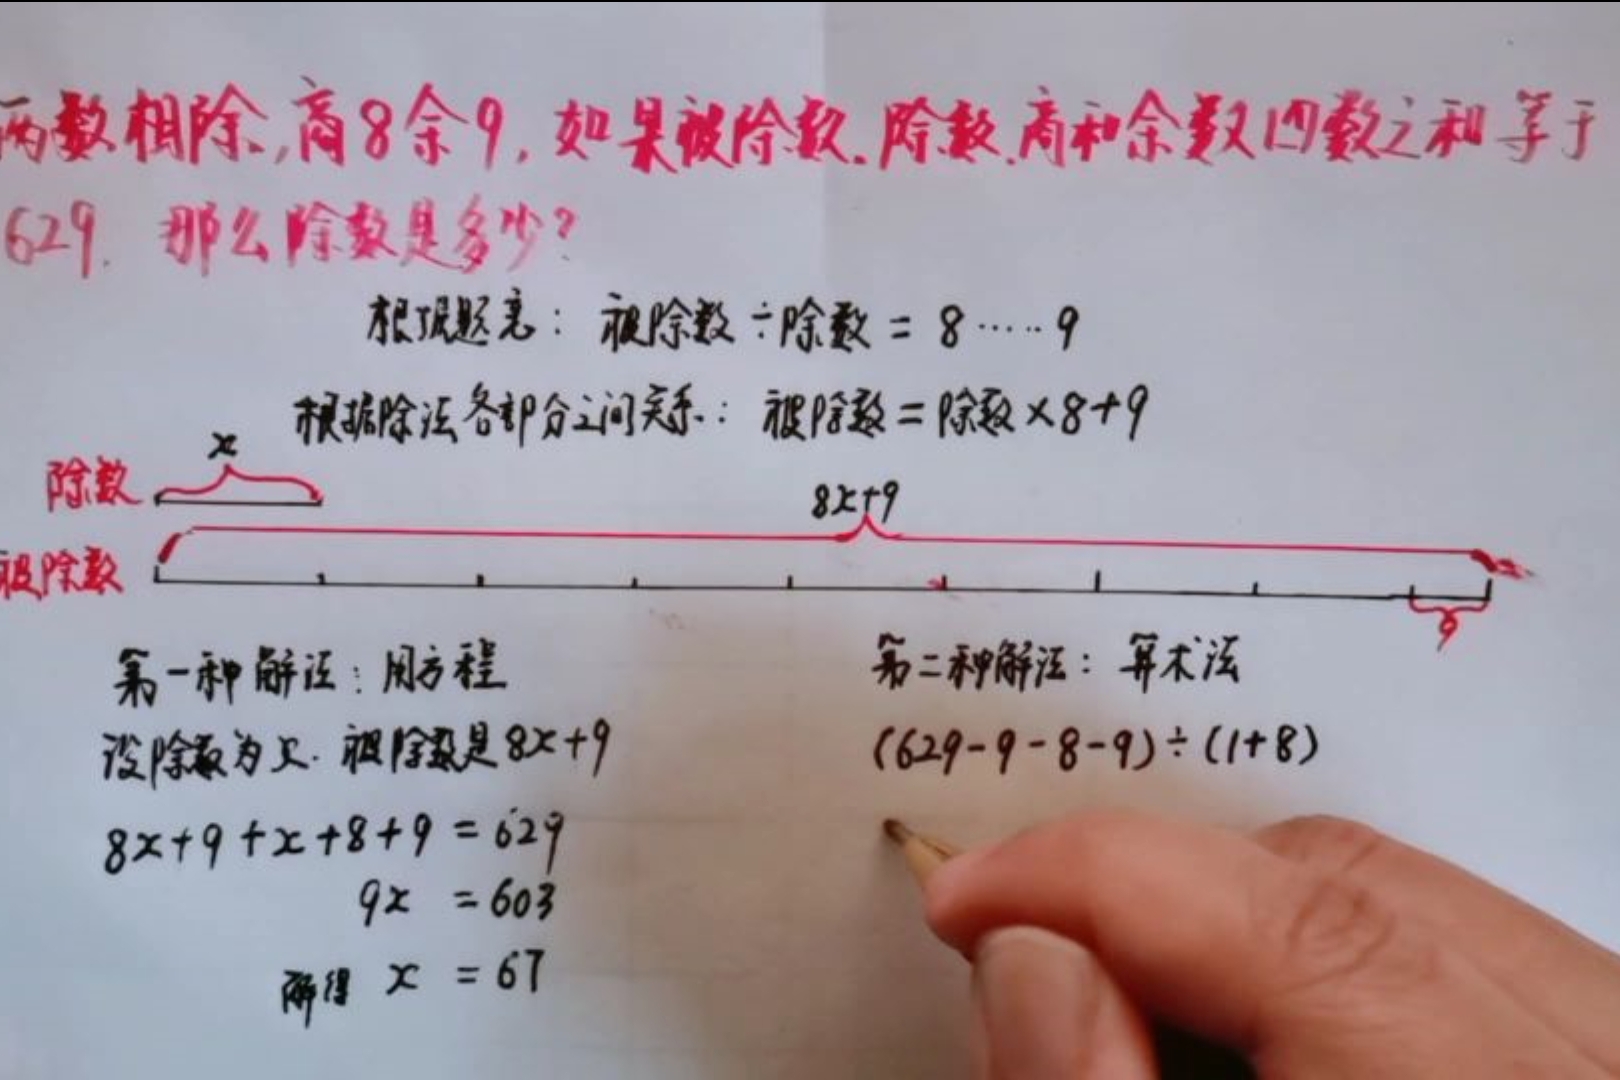 两数相除,商8余9,如果被除数.除数.商和余数四数之和等于
629.那么除数是多少?
根据题意:被除数÷除数=8……9
根据除法各部分之间关系:被除数=除数×8+9
x
除数
8x+9
被除数
9
第一种解法:用方程
设除数为x.被除数是8x+9
8x+9+x+8+9=629
9x=603
解得 x=67
第二种解法:算术法
(629-9-8-9)÷(1+8)